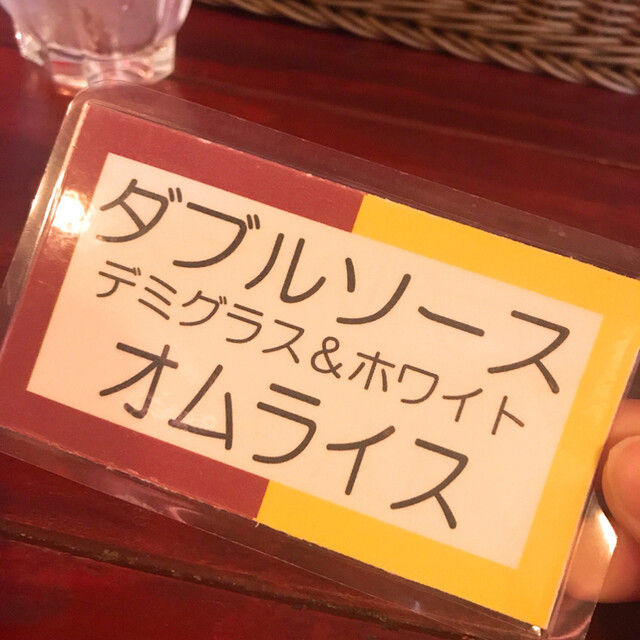 ダブルソース
デミグラス&ホワイト
オムライス